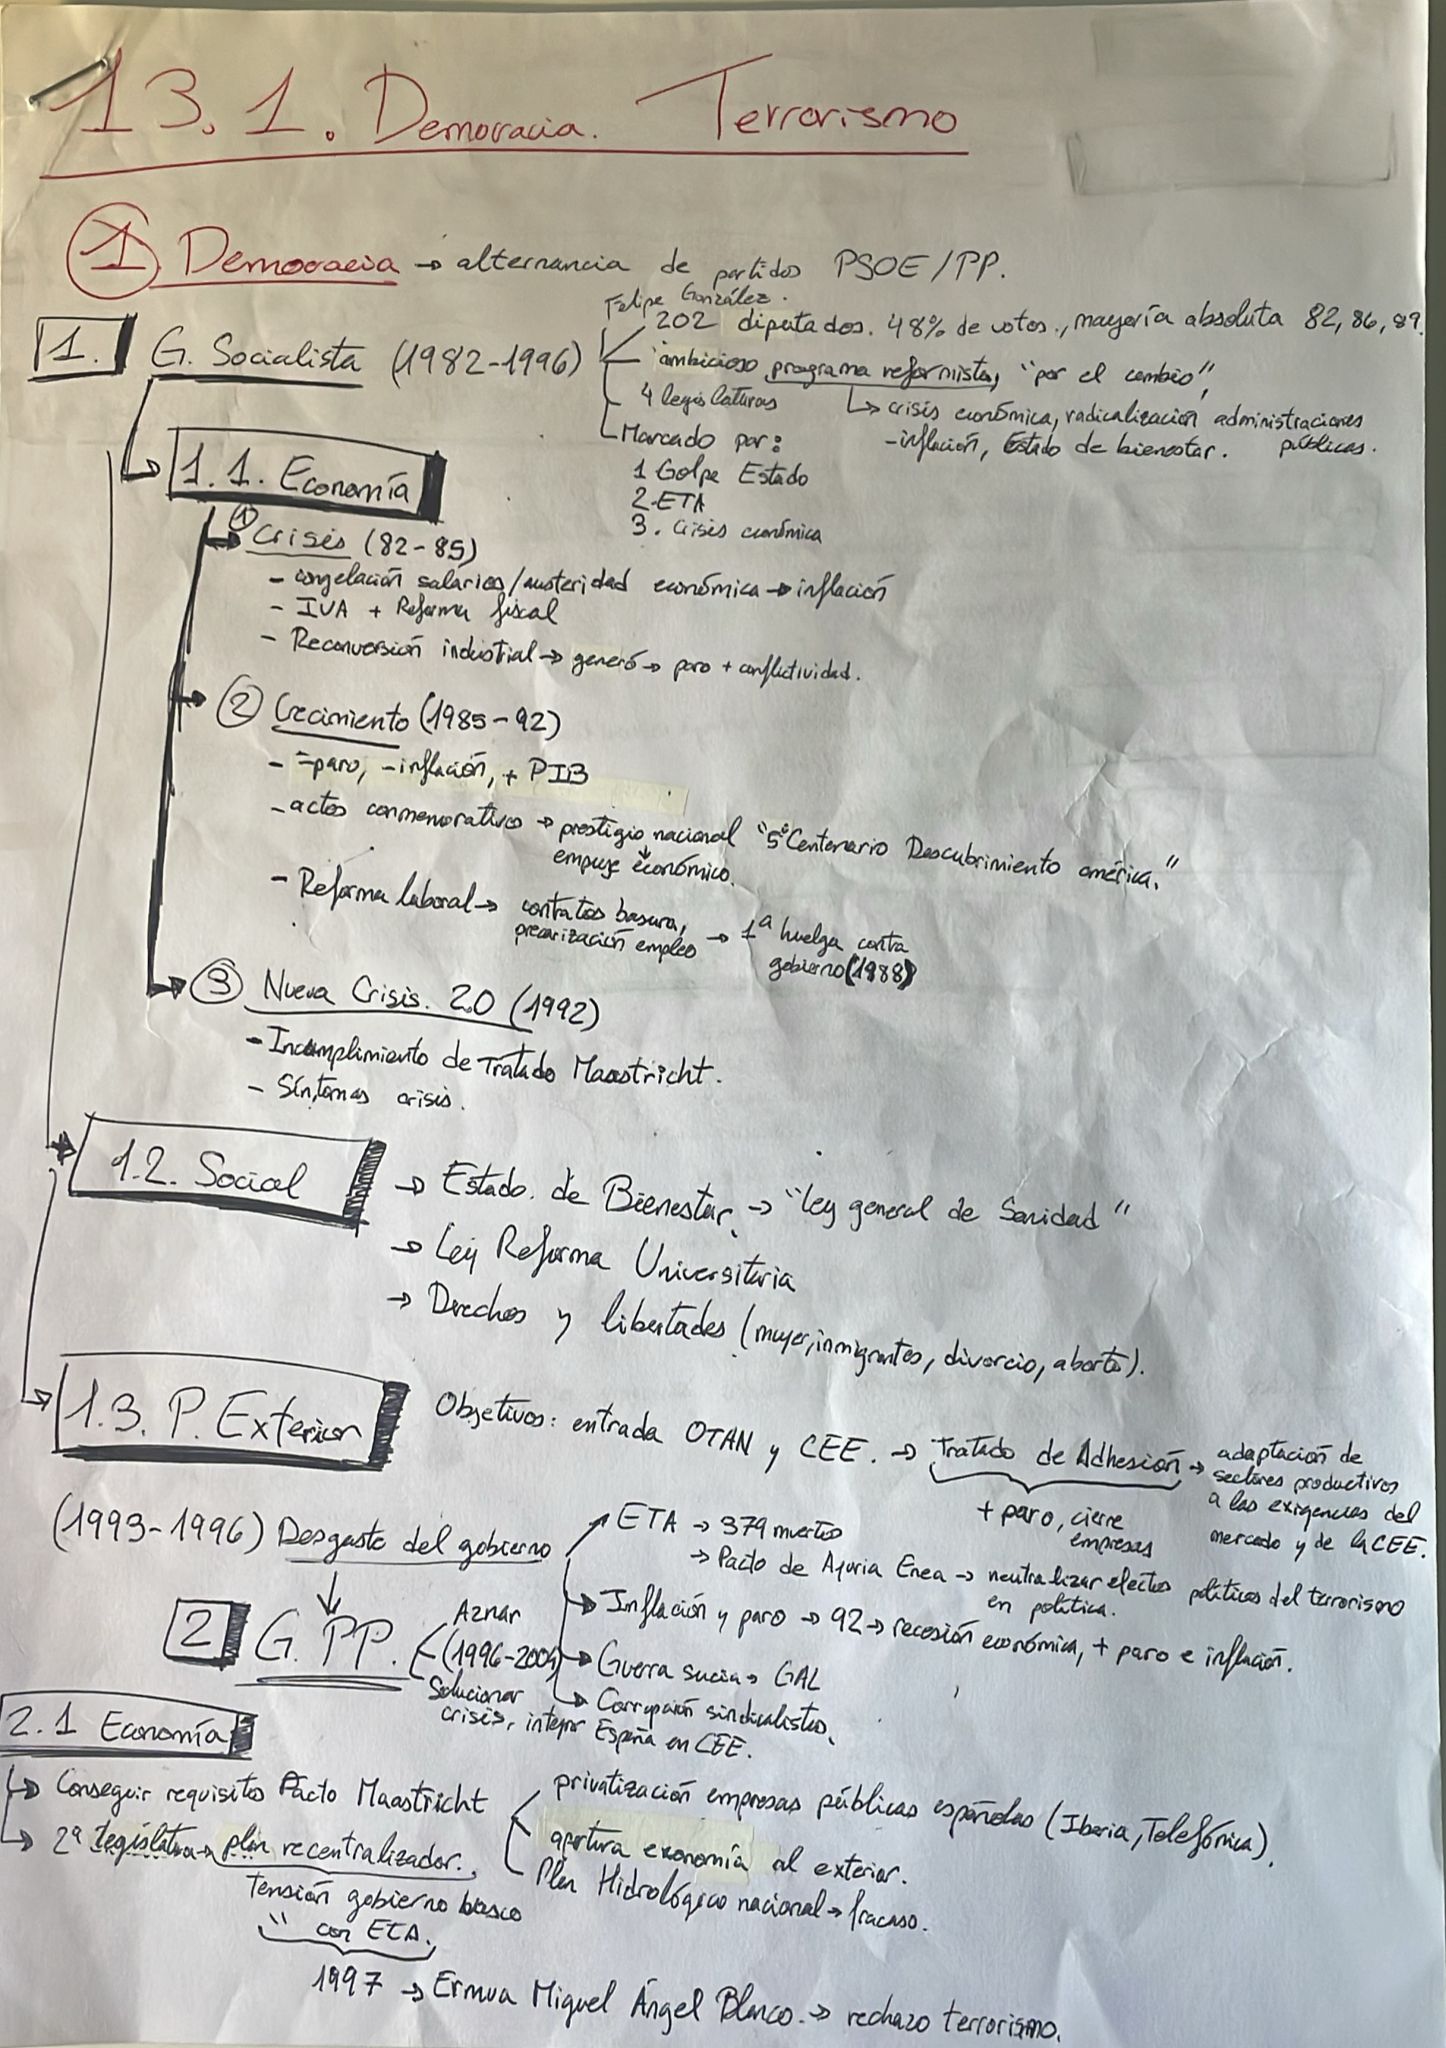 13.1. Democracia. Terrorismo
1 Democracia → alternancia de partidos PSOE/PP.
Felipe González.
1. G. Socialista (1982-1996)
202 diputados. 48% de votos., mayoría absoluta 82, 86, 89.
ambicioso programa reformista, "por el cambio",
4 legislaturas
↳ crisis económica, radicalización administraciones públicas.
-inflación, Estado de bienestar.
Marcado por:
1 Golpe Estado
2. ETA
3. Crisis económica
1.1. Economía
① Crisis (82-85)
- congelación salarios/austeridad económica → inflación
- IVA + Reforma fiscal
- Reconversión industrial → generó → paro + conflictividad.
② Crecimiento (1985-92)
- =paro, -inflación, + PIB
- actos conmemorativos → prestigio nacional "5º Centenario Descubrimiento américa."
↓
empuje económico.
- Reforma laboral → contratos basura,
precarización empleo → 1ª huelga contra
gobierno (1988)
③ Nueva Crisis. 2.0 (1992)
- Incumplimiento de Tratado Maastricht.
- Síntomas crisis.
1.2. Social
→ Estado. de Bienestar → "ley general de Sanidad"
→ Ley Reforma Universitaria
→ Derechos y libertades (mujer, inmigrantes, divorcio, aborto).
1.3. P. Exterior
Objetivos: entrada OTAN y CEE. → Tratado de Adhesión → adaptación de
sectores productivos
a las exigencias del
mercado y de la CEE.
+ paro, cierre
empresas
(1993-1996) Desgaste del gobierno
ETA → 379 muertos
→ Pacto de Ajuria Enea → neutralizar efectos políticos del terrorismo
en política.
Inflación y paro → 92 → recesión económica, + paro e inflación.
Guerra sucia → GAL
Corrupción sindicalistas.
2 G. PP.
Aznar
(1996-2004)
Solucionar
crisis, integrar España en CEE.
2.1 Economía
↳ Conseguir requisitos Pacto Maastricht
privatización empresas públicas españolas (Iberia, Telefónica).
apertura economía al exterior.
Plan Hidrológico nacional → fracaso.
↳ 2ª legislatura → plan recentralizador.
Tensión gobierno basco
" con ETA.
1997 → Ermua Miguel Ángel Blanco. → rechazo terrorismo.